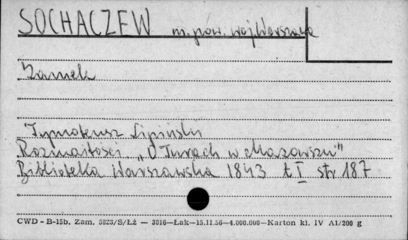 SOCHACZEW m. pow. woj. Warszawa
Zamek
Tymoteusz Lipiński
Rozmaitości „O Turach w Mazowszu"
Biblioteka Warszawska 1843 t I str 187
CWD - B-15b. Zam. 5823/S/Łż — 3816 — Łak — 15.11.56 — 4.000.000 — Karton kl. IV A1/200 g